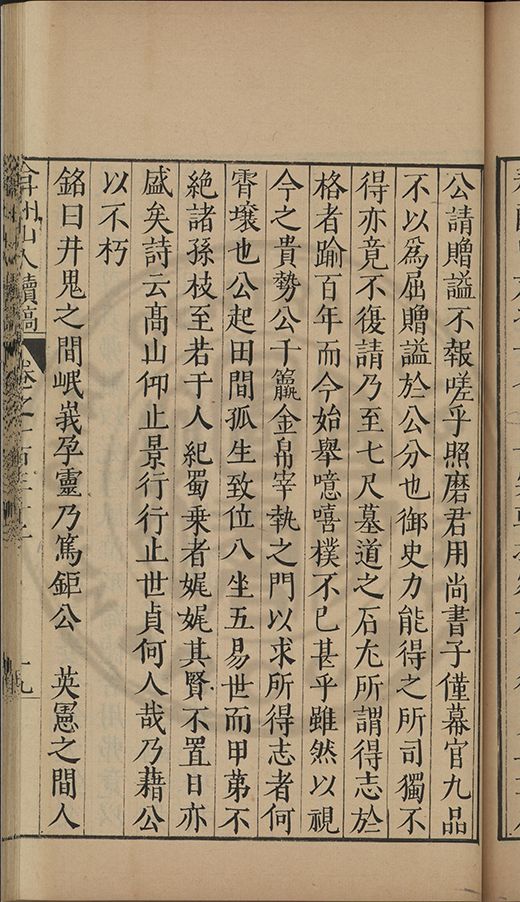 公請贈謚不報嗟乎照磨君用尚書子僅幕官九品
不以為屈贈謚於公分也御史力能得之所司獨不
得亦竟不復請乃至七尺墓道之石尤所謂得志於
格者踰百年而今始舉噫嘻樸不已甚乎雖然以視
今之貴勢公千籯金帛宰執之門以求所得志者何
霄壤也公起田間孤生致位八坐五易世而甲第不
絕諸孫枝至若于人紀蜀乗者娓娓其賢不置日亦
盛矣詩云高山仰止景行行止世貞何人哉乃藉公
以不朽
銘曰井鬼之間岷峩孕靈乃篤鉅公　英憲之間人
弇州山人續稿　卷之一百三十　十九